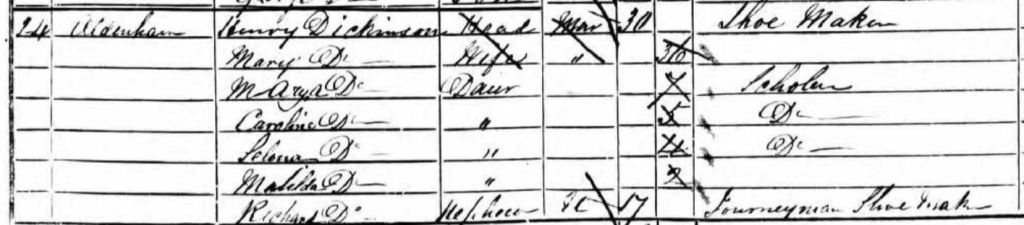 24 Aldenham Henry Dickinson Head Mar 30 Shoe Maker
Mary Do Wife " 30
Do Daur Scholar
Caroline Do " 5 Do
Selena Do " Do
Matilda Do " 2
Richard Do Nephew 17 Journeyman Shoe Mak